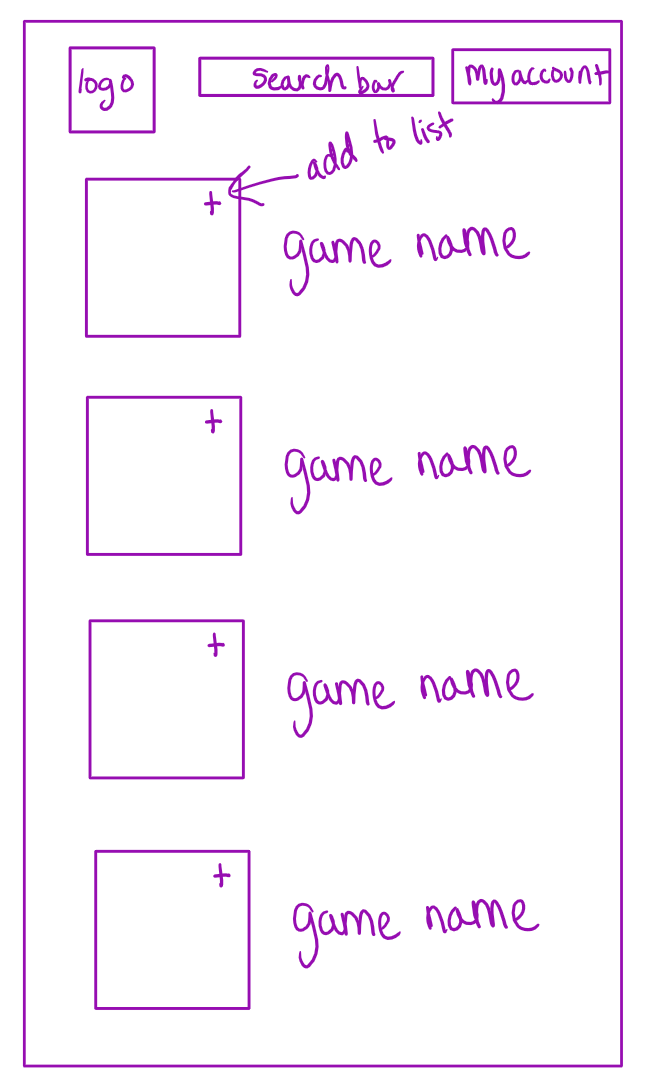 logo
search bar
my account
add to list
+
game name
+
game name
+
game name
+
game name